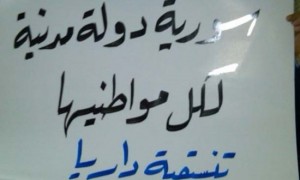 سورية دولة مدنية
لكل مواطنيها
تنسقية داريا